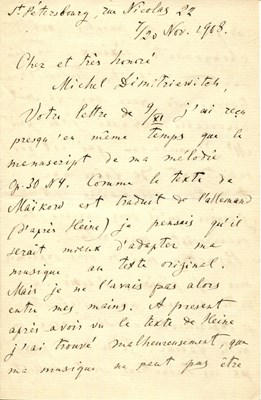 St. Pétersbourg, rue Nicolas 22
7/20 Nov. 1908.
Cher et très honoré
Michel Dimitriewitch,
Votre lettre de 9/XI j'ai reçu
presqu'en même temps que le
manuscript de ma mélodie
Op. 30 № 4. Comme le texte de
Maïkow est traduit de l'allemand
(d'après Heine) je pensais qu'il
serait mieux d'adapter ma
musique au texte original.
Mais je ne l'avais pas alors
entre mes mains. A present
après avoir vu le texte de Heine
j'ai trouvé malheureusement, que
ma musique ne peut pas être